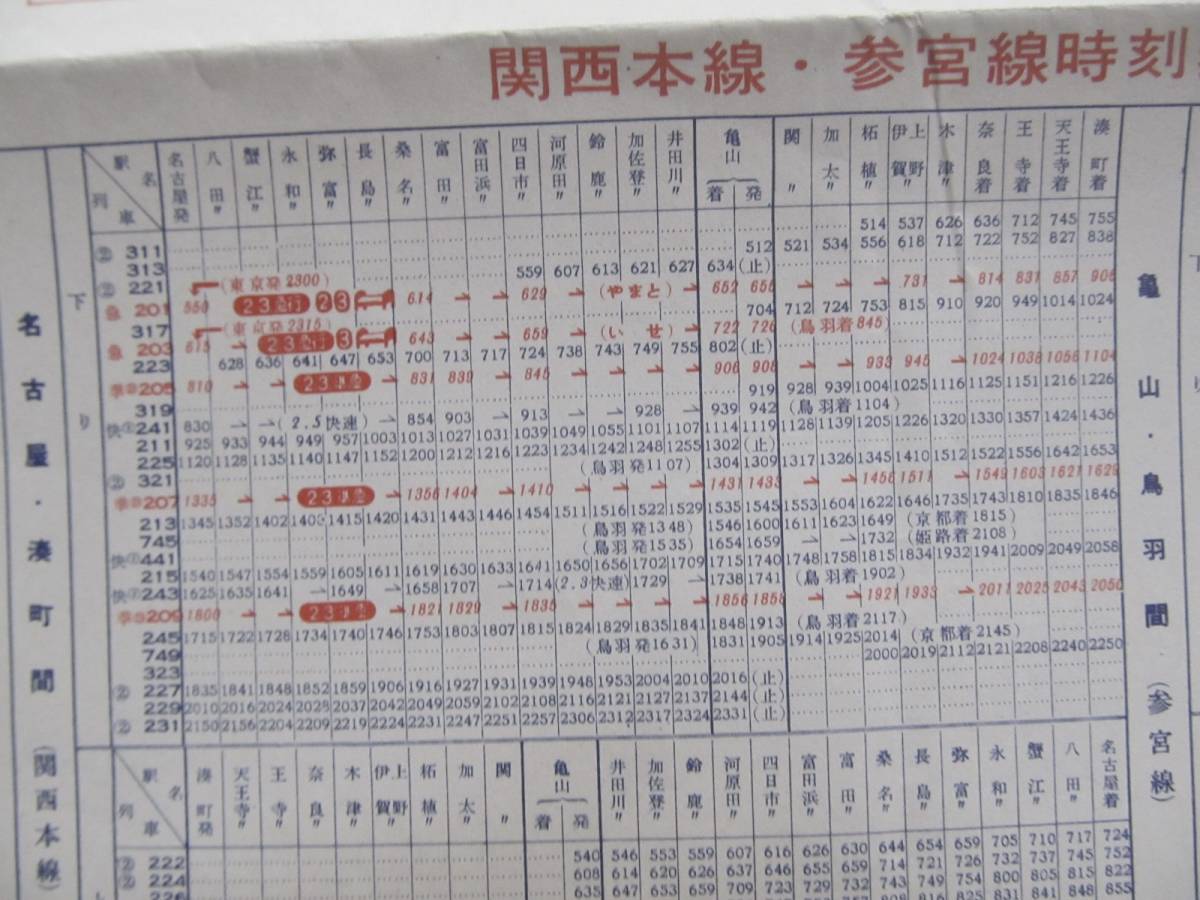 関西本線・参宮線時刻
名古屋・湊町間(関西本線)
下り
駅名 列車 名古屋発 八田〃 蟹江〃 永和〃 弥富〃 長島〃 桑名〃 富田〃 富田浜〃 四日市〃 河原田〃 鈴鹿〃 加佐登〃 井田川〃 亀山 着 発 関〃 加太〃 柘植〃 伊賀上野〃 木津〃 奈良着 王寺着 天王寺着 湊町着
② 311 514 537 626 636 712 745 755
313 512 521 534 556 618 712 722 752 827 838
② 221 (東京発2300) 559 607 613 621 627 634 (止)
急 201 550 23急行 23 614 → → 629 → (やまと) → 652 655 → → → 731 → 814 831 857 906
317 (東京発2315) 704 712 724 753 815 910 920 949 1014 1024
急 203 615 → 23急行 3 643 → → 659 → (いせ) → 722 726 (鳥羽着845)
223 628 636 641 647 653 700 713 717 724 738 743 749 755 802 (止)
準②205 810 → → 23準急 → 831 839 → 845 → → → → 906 908 → → 933 945 → 1024 1038 1056 1104
319 919 928 939 1004 1025 1116 1125 1151 1216 1226
快②241 830 → →(2.3快速)→ 854 903 → 913 → → 928 → 939 942 (鳥羽着1104)
211 925 933 944 949 957 1003 1013 1027 1031 1039 1049 1055 1101 1107 1114 1119 1128 1139 1205 1226 1320 1330 1357 1424 1436
225 1120 1128 1135 1140 1147 1152 1200 1212 1216 1223 1234 1242 1248 1255 1302 (止)
② 321 (鳥羽発1107) 1304 1309 1317 1326 1345 1410 1512 1522 1556 1642 1653
準②207 1335 → → 23準急 → 1356 1404 → 1410 → → → → 1431 1433 → → 1456 1511 → 1549 1603 1621 1629
213 1345 1352 1402 1408 1415 1420 1431 1443 1446 1454 1511 1516 1522 1529 1535 1545 1553 1604 1622 1646 1735 1743 1810 1835 1846
745 (鳥羽発1348) 1546 1600 1611 1623 1649 (京都着1815)
快②441 (鳥羽発1535) 1654 1659 → → 1732 (姫路着2108)
215 1540 1547 1554 1559 1605 1611 1619 1630 1633 1641 1650 1656 1702 1709 1715 1740 1748 1758 1815 1834 1932 1941 2009 2049 2058
快②243 1625 1635 1641 → 1649 → 1658 1707 → 1714 (2.3快速) 1729 → 1738 1741 (鳥羽着1902)
準②209 1800 → → 23準急 → 1821 1829 → 1835 → → → → 1856 1858 → → 1921 1933 → 2011 2025 2043 2050
245 1715 1722 1728 1734 1740 1746 1753 1803 1807 1815 1824 1829 1835 1841 1848 1913 (鳥羽着2117)
749 (鳥羽発1631) 1831 1905 1914 1925 2014 (京都着2145)
323 2000 2019 2112 2121 2208 2240 2250
② 227 1835 1841 1848 1852 1859 1906 1916 1927 1931 1939 1948 1953 2004 2010 2016 (止)
229 2010 2016 2024 2028 2037 2042 2049 2059 2102 2108 2116 2121 2127 2137 2144 (止)
② 231 2150 2156 2204 2209 2219 2224 2231 2247 2251 2257 2306 2312 2317 2324 2331 (止)
駅名 列車 湊町発 天王寺〃 王寺〃 奈良〃 木津〃 伊賀上野〃 柘植〃 加太〃 関〃 亀山 着 発 井田川〃 加佐登〃 鈴鹿〃 河原田〃 四日市〃 富田浜〃 富田〃 桑名〃 長島〃 弥富〃 永和〃 蟹江〃 八田〃 名古屋着
② 222 540 546 553 559 607 616 626 630 644 654 659 705 710 717 724
② 224 608 614 620 626 637 646 655 659 714 721 726 732 737 745 752
226 635 647 653 659 709 723 729 732 743 749 754 800 805 815 822
825 831 841 848 855
亀山・鳥羽間(参宮線)